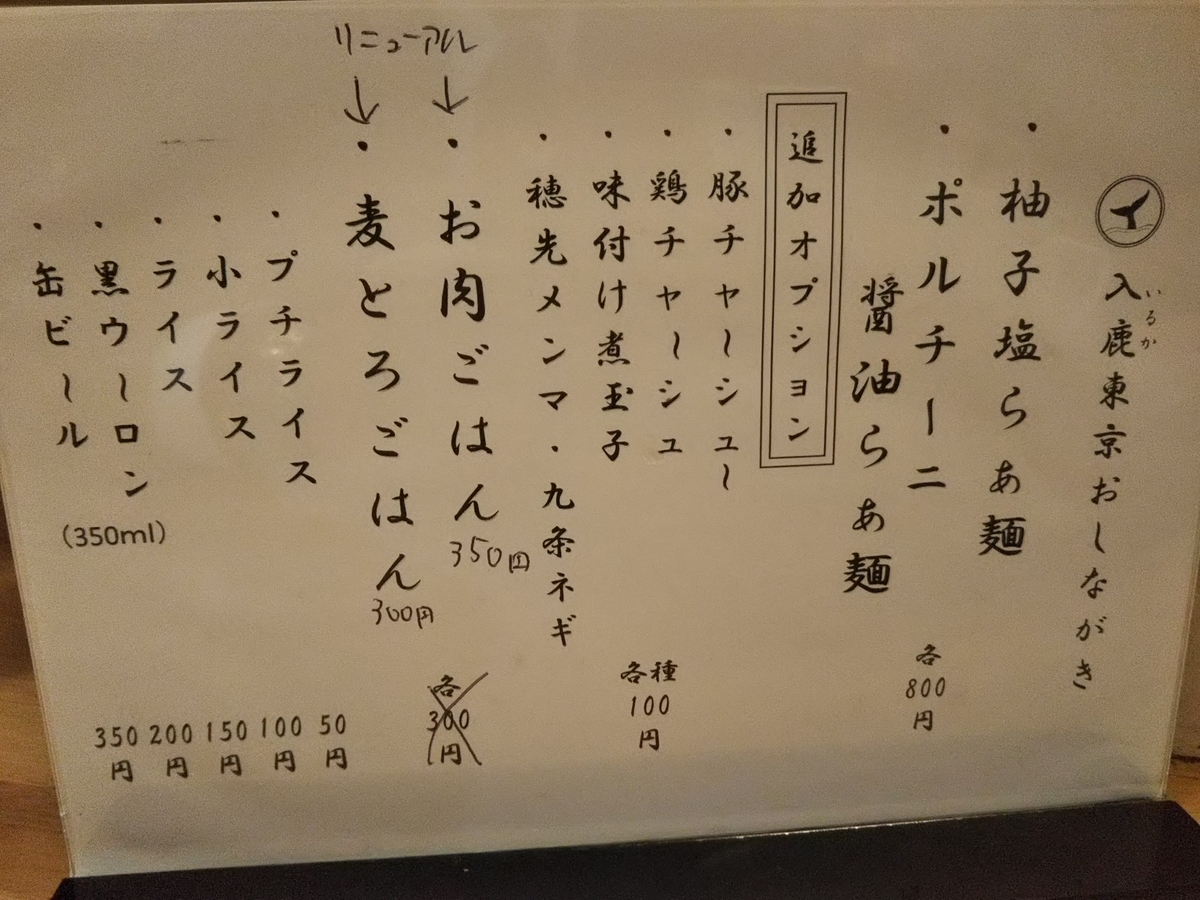 入鹿東京おしながき
いるか
・柚子塩らぁ麺
・ポルチーニ
醤油らぁ麺
各
800
円
追加オプション
・豚チャーシュー
・鶏チャーシュ
・味付け煮玉子
・穂先メンマ・九条ネギ
各種
100
円
リニューアル
↓ ↓
・お肉ごはん
350円
・麦とろごはん
300円
各
300
円
・プチライス
50
円
・小ライス
100
円
・ライス
150
円
・黒ウーロン
200
円
・缶ビール
(350ml)
350
円